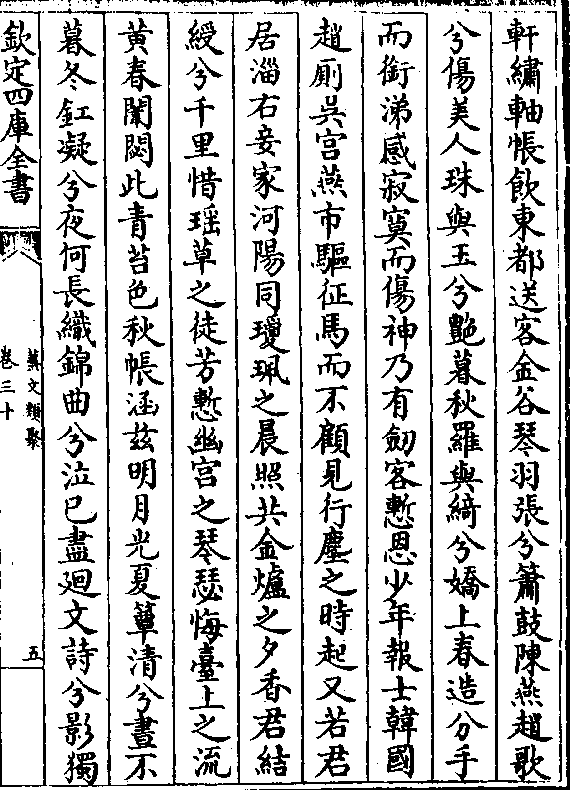 軒繡軸帳飲東都送客金谷琴羽張兮簫鼓陳燕趙歌
兮傷美人珠與玉兮艷暮秋羅與綺兮嬌上春造分手
而銜涕感寂寞而傷神乃有劒客慙恩少年報士韓國
趙厠吳宫燕市驅征馬而不顧見行塵之時起又若君
居淄右妾家河陽同瓊珮之晨照共金爐之夕香君結
綬兮千里惜瑶草之徒芳慙幽宫之琴瑟悔臺上之流
黄春閨閟此青苔色秋帳涵兹明月光夏簟清兮晝不
暮冬釭凝兮夜何長織錦曲兮泣已盡廻文詩兮影獨
欽定四庫全書
藝文類聚
卷三十
五